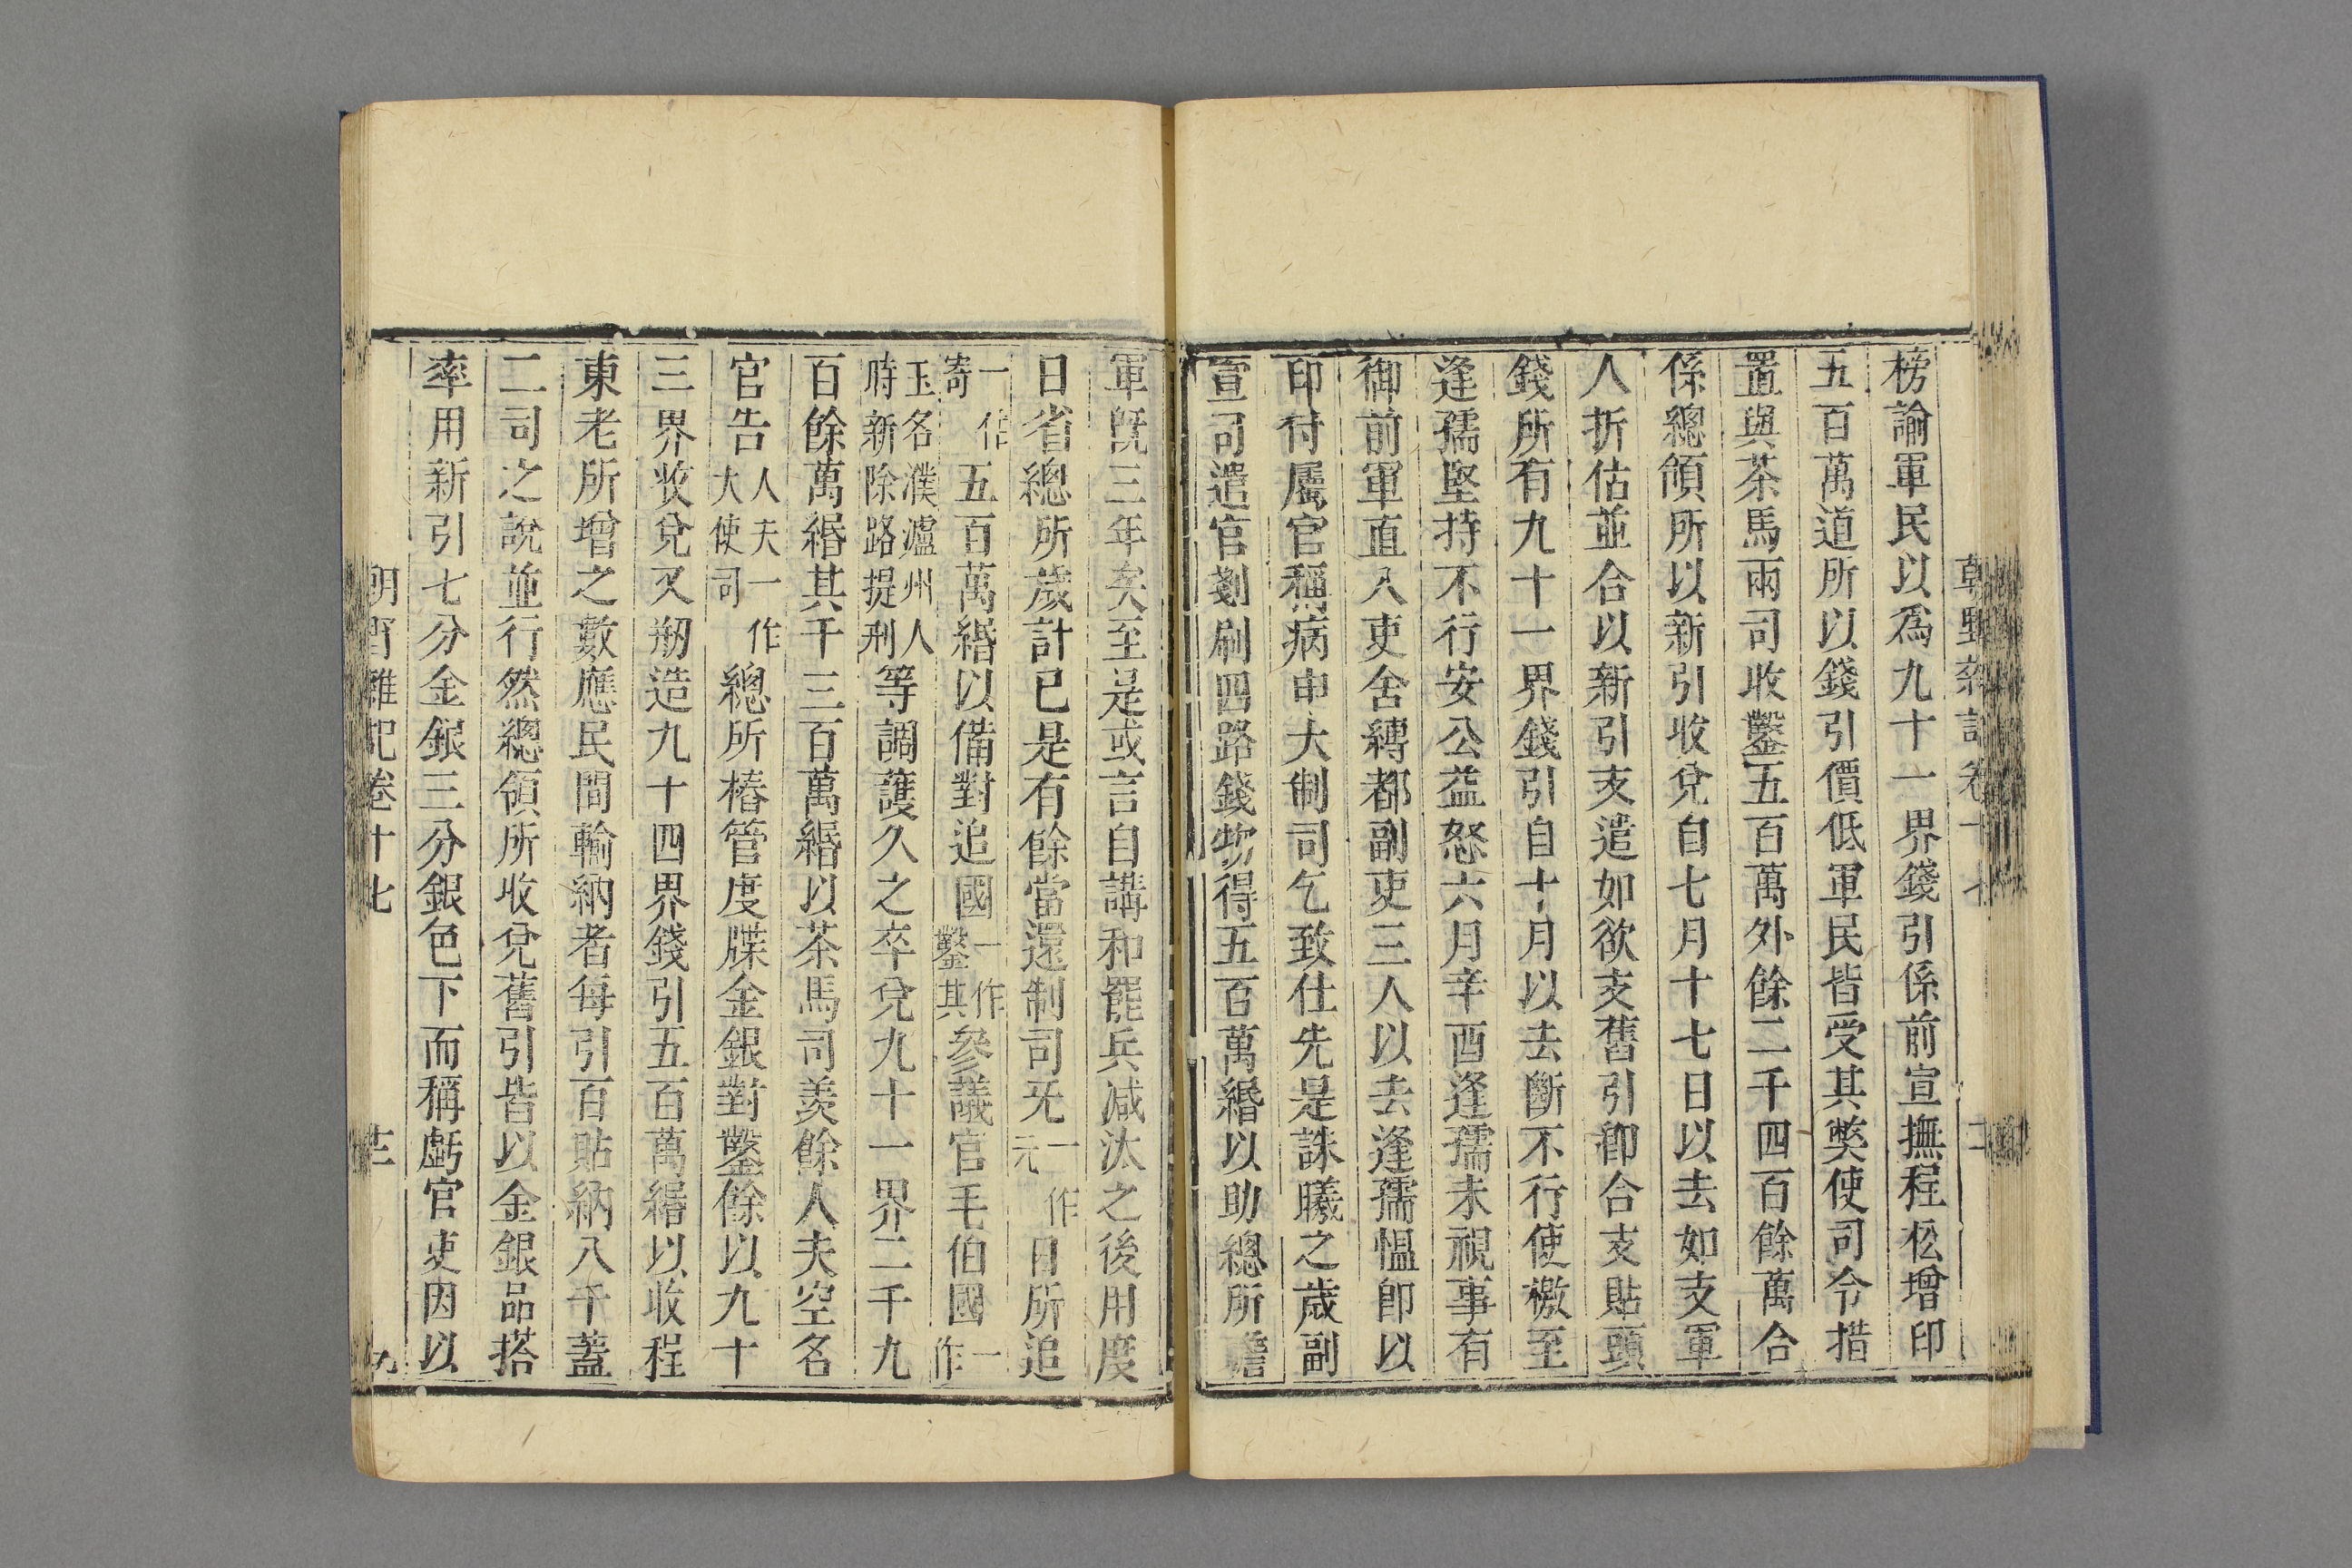 榜諭軍民以為九十一界錢引係前宣撫程松增印
五百萬道所以錢引價低軍民皆受其弊使司令措
置與茶馬兩司收鑿五百萬外餘二千四百餘萬合
係總領所以新引收兌自七月十七日以去如支軍
人折估並合以新引支遣如欲支舊引卽合支貼頭
錢所有九十一界錢引自十月以去斷不行使檄至
逢孺堅持不行安公益怒六月辛酉逢孺未視事有
御前軍直入吏舍縛都副吏三人以去逢孺愠卽以
印付屬官稱病申大制司乞致仕先是誅曦之歲副
宣司遣官剗刷四路錢物得五百萬緡以助總所贍
軍旣三年矣至是或言自講和罷兵減汰之後用度
日省總所歲計已是有餘當還制司旡一作元日所追
一作寄五百萬緡以備對追國一作鑿其參議官毛伯國一作
玉名濮瀘州人時新除路提刑等調護久之卒兌九十一界二千九
百餘萬緡其千三百萬緡以茶馬司羨餘人夫空名
官告人夫一作大使司總所樁管度牒金銀對鑿餘以九十
三界收兌又剏造九十四界錢引五百萬緡以收程
東老所增之數應民間輸納者每引百貼納八千蓋
二司之說並行然總領所收兌舊引皆以金銀品搭
率用新引七分金銀三分銀色下而稱虧官吏因以